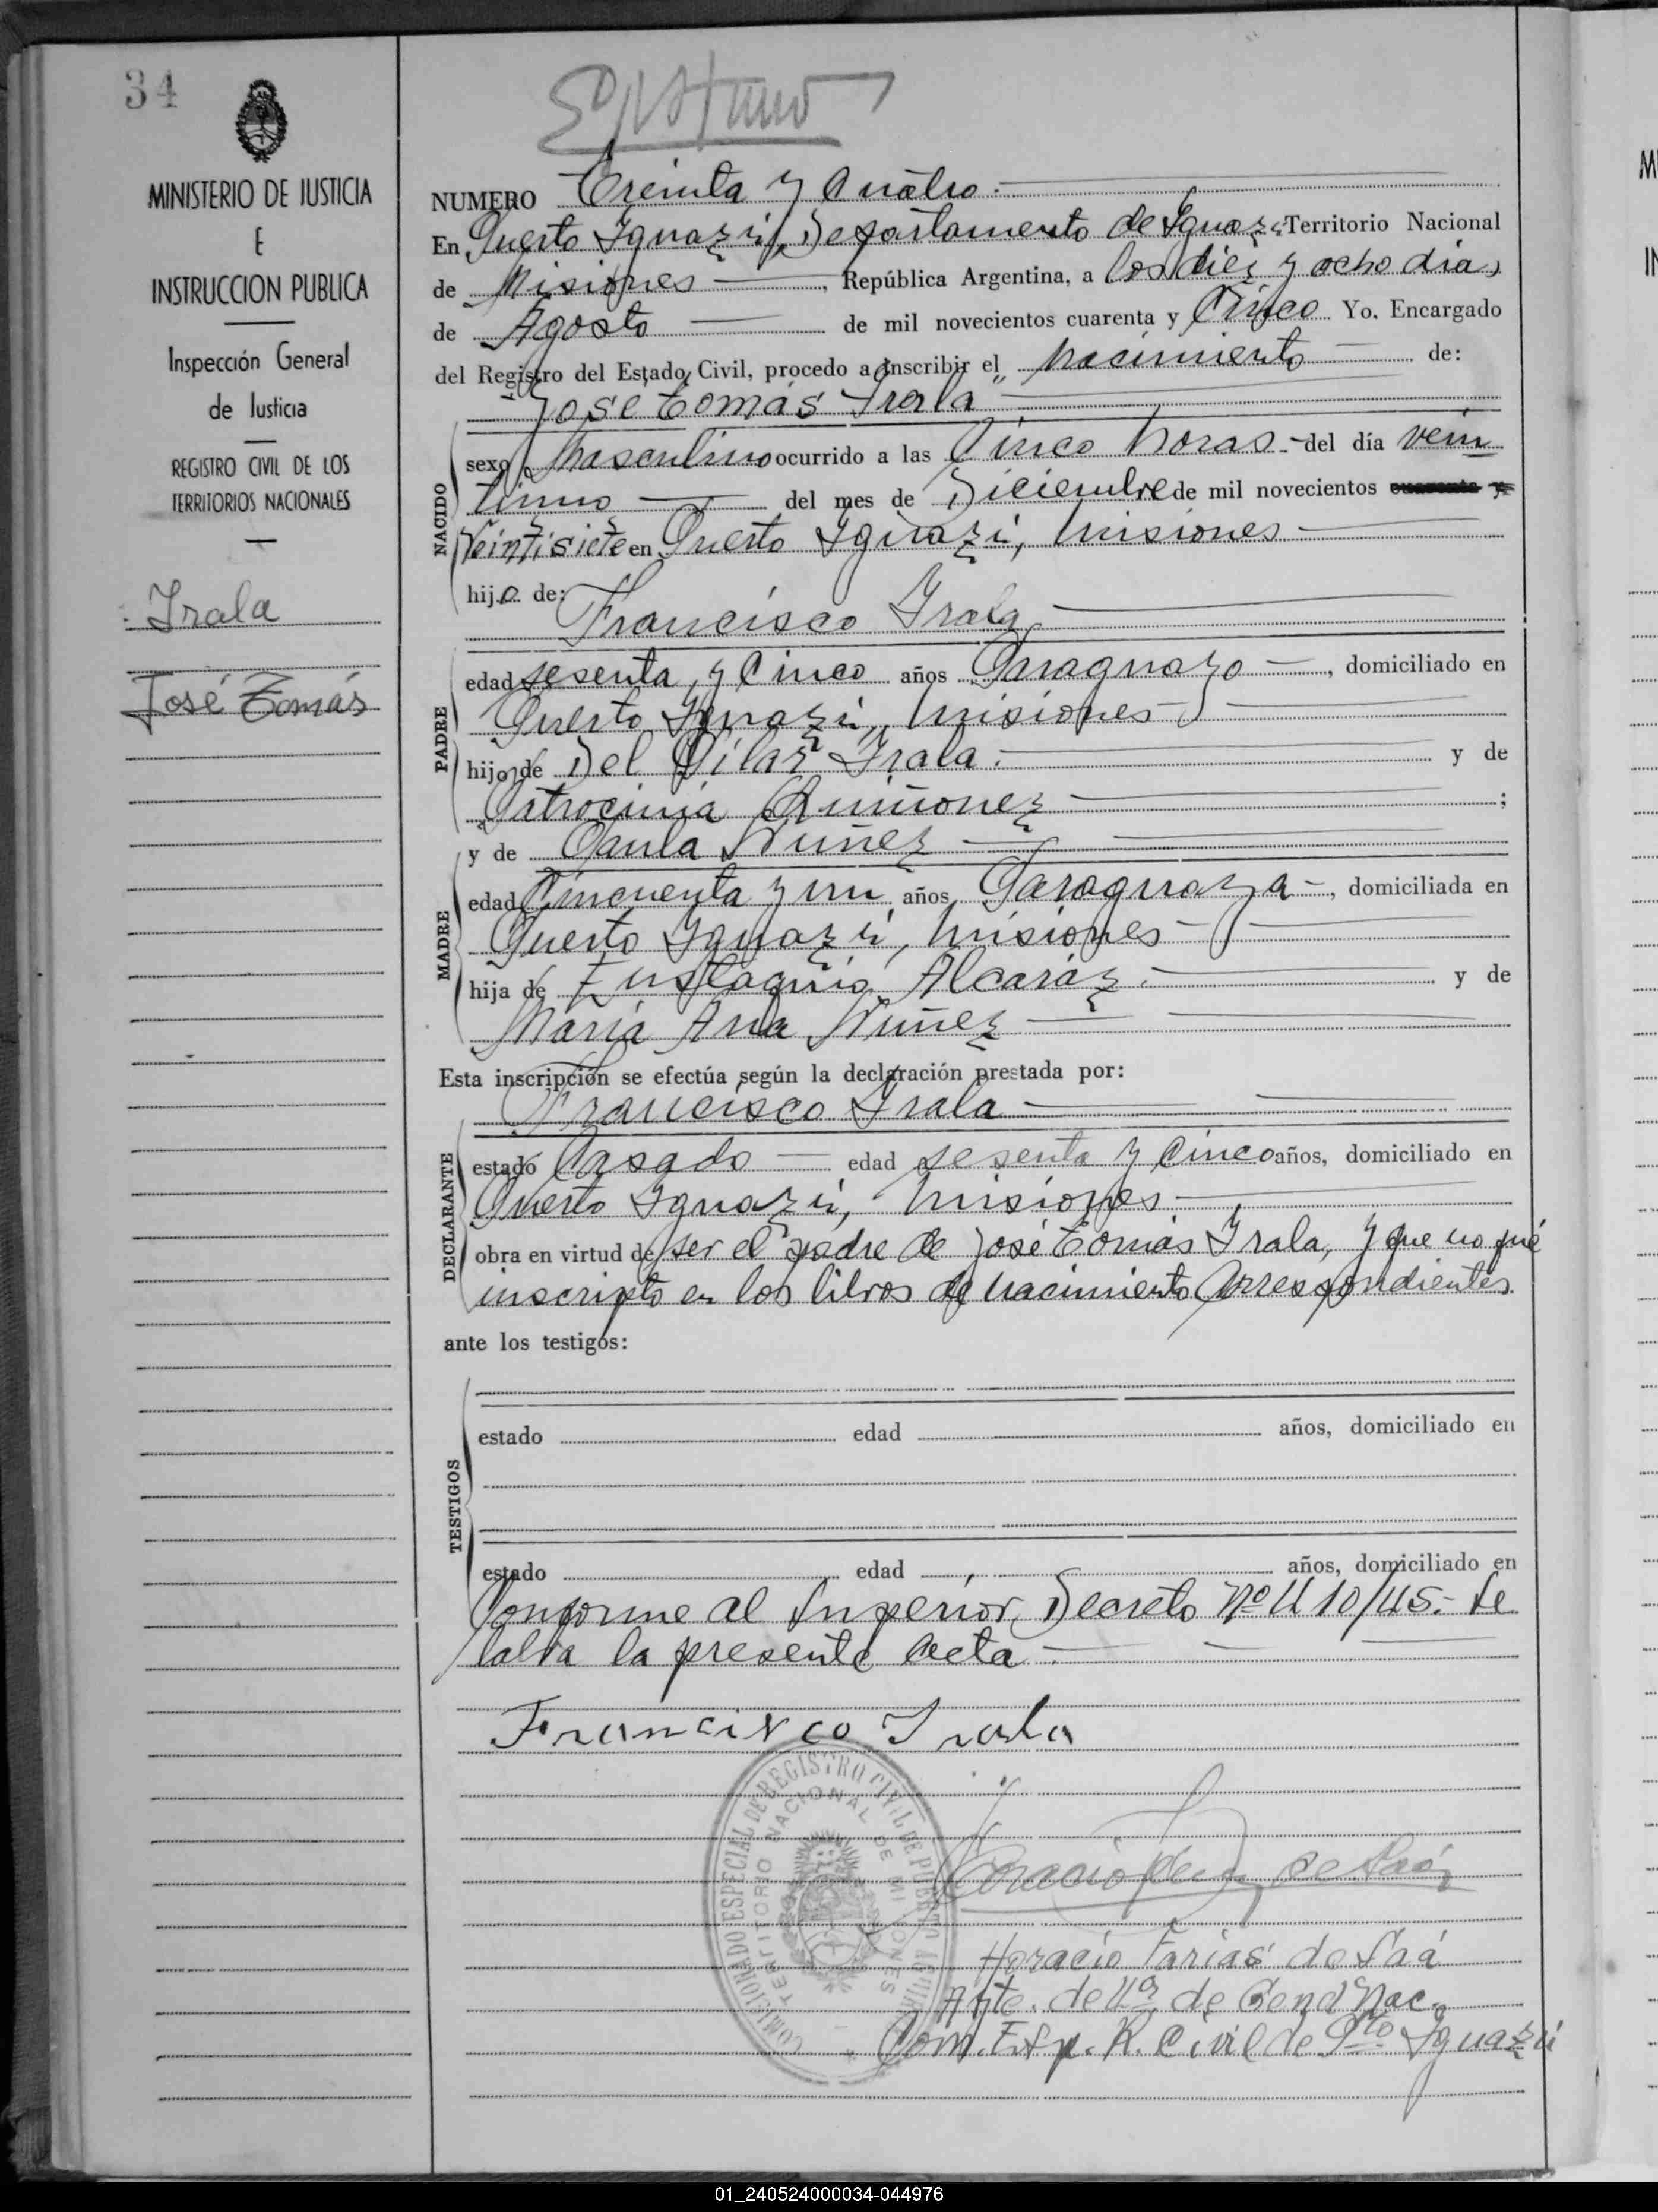 34
MINISTERIO DE JUSTICIA
E
INSTRUCCION PUBLICA
Inspección General
de Justicia
REGISTRO CIVIL DE LOS
TERRITORIOS NACIONALES
Irala
José Tomás
NUMERO Treinta y Cuatro.
En Puerto Iguazú, Departamento de Iguazú Territorio Nacional
de Misiones, República Argentina, a los diez y ocho días
de Agosto de mil novecientos cuarenta y Cinco Yo, Encargado
del Registro del Estado Civil, procedo a inscribir el nacimiento de:
"José Tomás Irala"
NACIDO
sexo Masculino ocurrido a las Cinco horas - del día vein
tiuno del mes de Diciembre de mil novecientos cuarenta y
Veintisiete en Puerto Iguazú, Misiones
hijo de:
Francisco Irala
PADRE
edad sesenta y Cinco años Paraguayo, domiciliado en
Puerto Iguazú, Misiones
hijo de Del Pilar Irala. y de
Patrocinia Quiñonez ;
y de Paula Nuñez
MADRE
edad Cincuenta y un años Paraguaya, domiciliada en
Puerto Iguazú, Misiones
hija de Eustaquio Alcaráz. y de
María Ana Nuñez
Esta inscripción se efectúa según la declaración prestada por:
Francisco Irala
DECLARANTE
estado Casado edad sesenta y Cinco años, domiciliado en
Puerto Iguazú, Misiones
obra en virtud de ser el padre de José Tomás Irala, y que no fué
inscripto en los libros de nacimiento Correspondientes.
ante los testigos:
TESTIGOS
estado edad años, domiciliado en
estado edad años, domiciliado en
Conforme al Superior Decreto Nº 4110/45.- Se
labra la presente acta.
Francisco Irala
COMISIONADO ESPECIAL DE REGISTRO CIVIL DE PUERTO AGUIRRE
TERRITORIO NACIONAL DE MISIONES
Horacio Farias de Saá
Horacio Farias de Saá
Afte. de Gend. Nac.
Com. Esp. R. Civil de Pto Iguazú
01_240524000034-044976